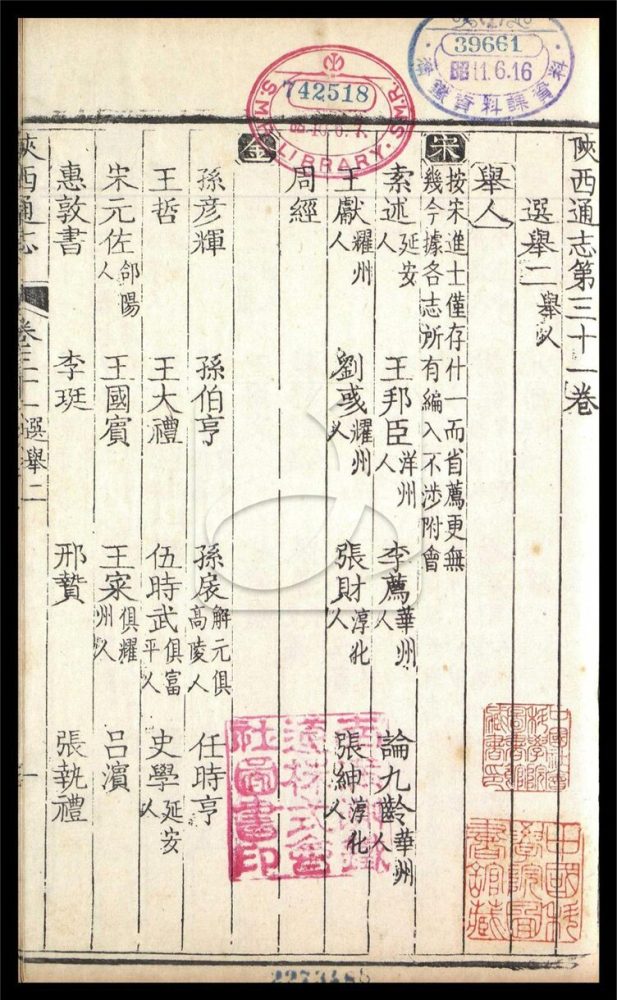 陝西通志第三十一卷
選舉二 舉人
舉人
宋
按宋進士僅存什一而省薦更無
幾今據各志所有編入不涉附會
索述 延安人 王邦臣 洋州人 李薦 華州人 論九齡 華州人
王獻 耀州人 劉彧 耀州人 張財 淳化人 張紳 淳化人
周經
金
孫彥輝 孫伯亨 孫𢈪 解元俱高陵人 任時亨
王哲 王大禮 伍時武 俱富平人 史學 延安人
宋元佐 郃陽人 王國賓 王寀 俱耀州人 呂濱
惠敦書 李珽 邢贊 張執禮
陝西通志 卷三十一 選舉二 一
742518
S.M.R. LIBRARY. S.M.R.
39661
昭11.6.16
中國科
學院圖
書館藏
社圖書印
2273486